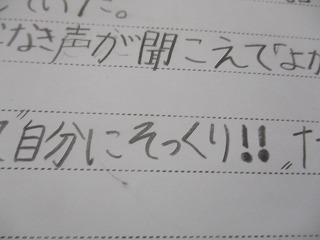 ていた。
なき声が聞こえて「よか
"自分にそっくり!!"